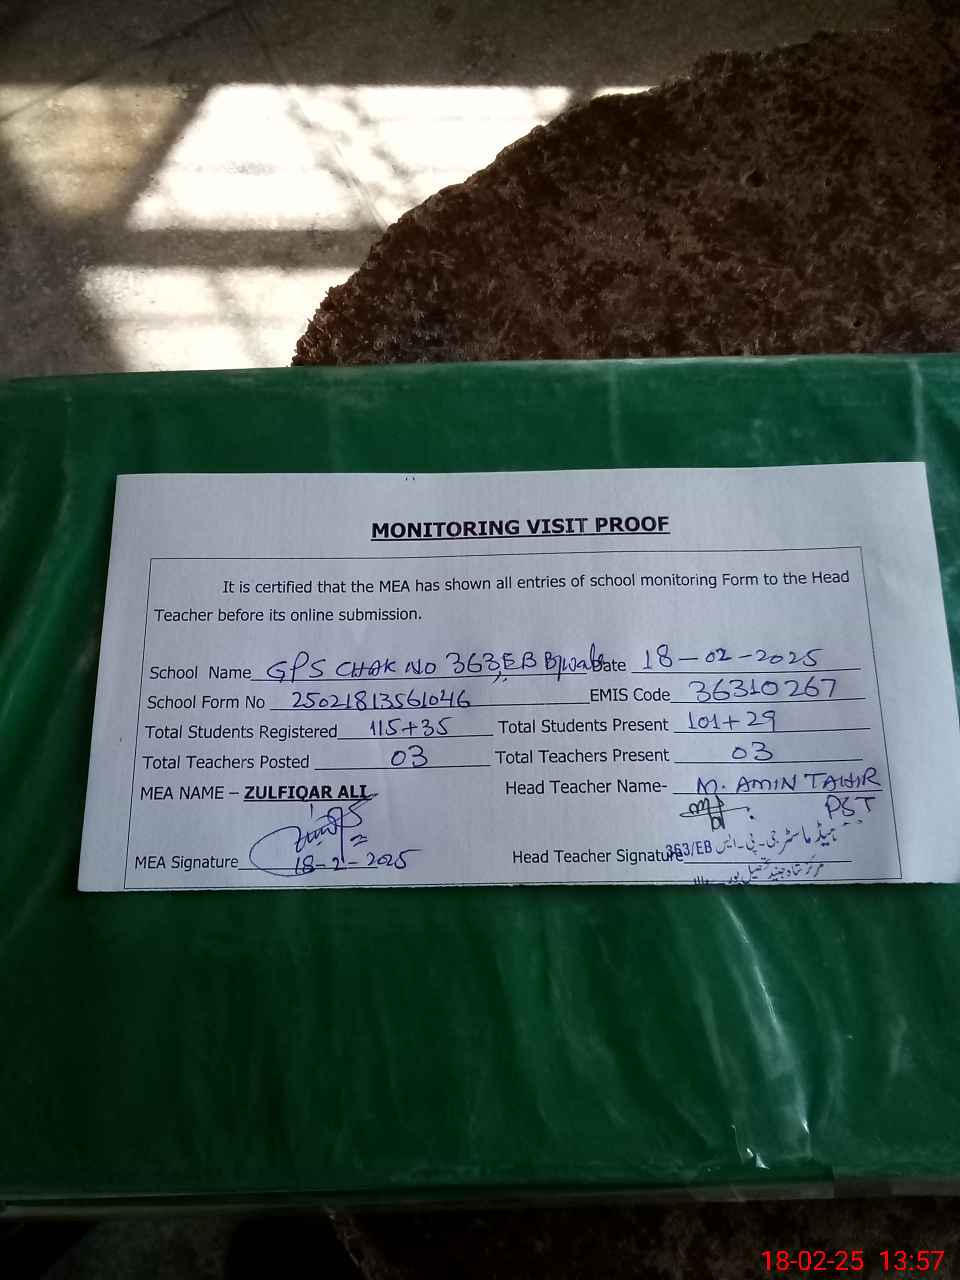 MONITORING VISIT PROOF
It is certified that the MEA has shown all entries of school monitoring Form to the Head
Teacher before its online submission.
School Name GPS CHAK NO 363, EB Date 18-02-2025
School Form No 25021813561046 EMIS Code 36310267
Total Students Registered 115+35 Total Students Present 101+29
Total Teachers Posted 03 Total Teachers Present 03
MEA NAME – ZULFIQAR ALI Head Teacher Name- M. AMIN TAHIR
PST
MEA Signature 18-2-2025 Head Teacher Signature 363/EB ہیڈ ماسٹر جی-پی-ایس
18-02-25 13:57